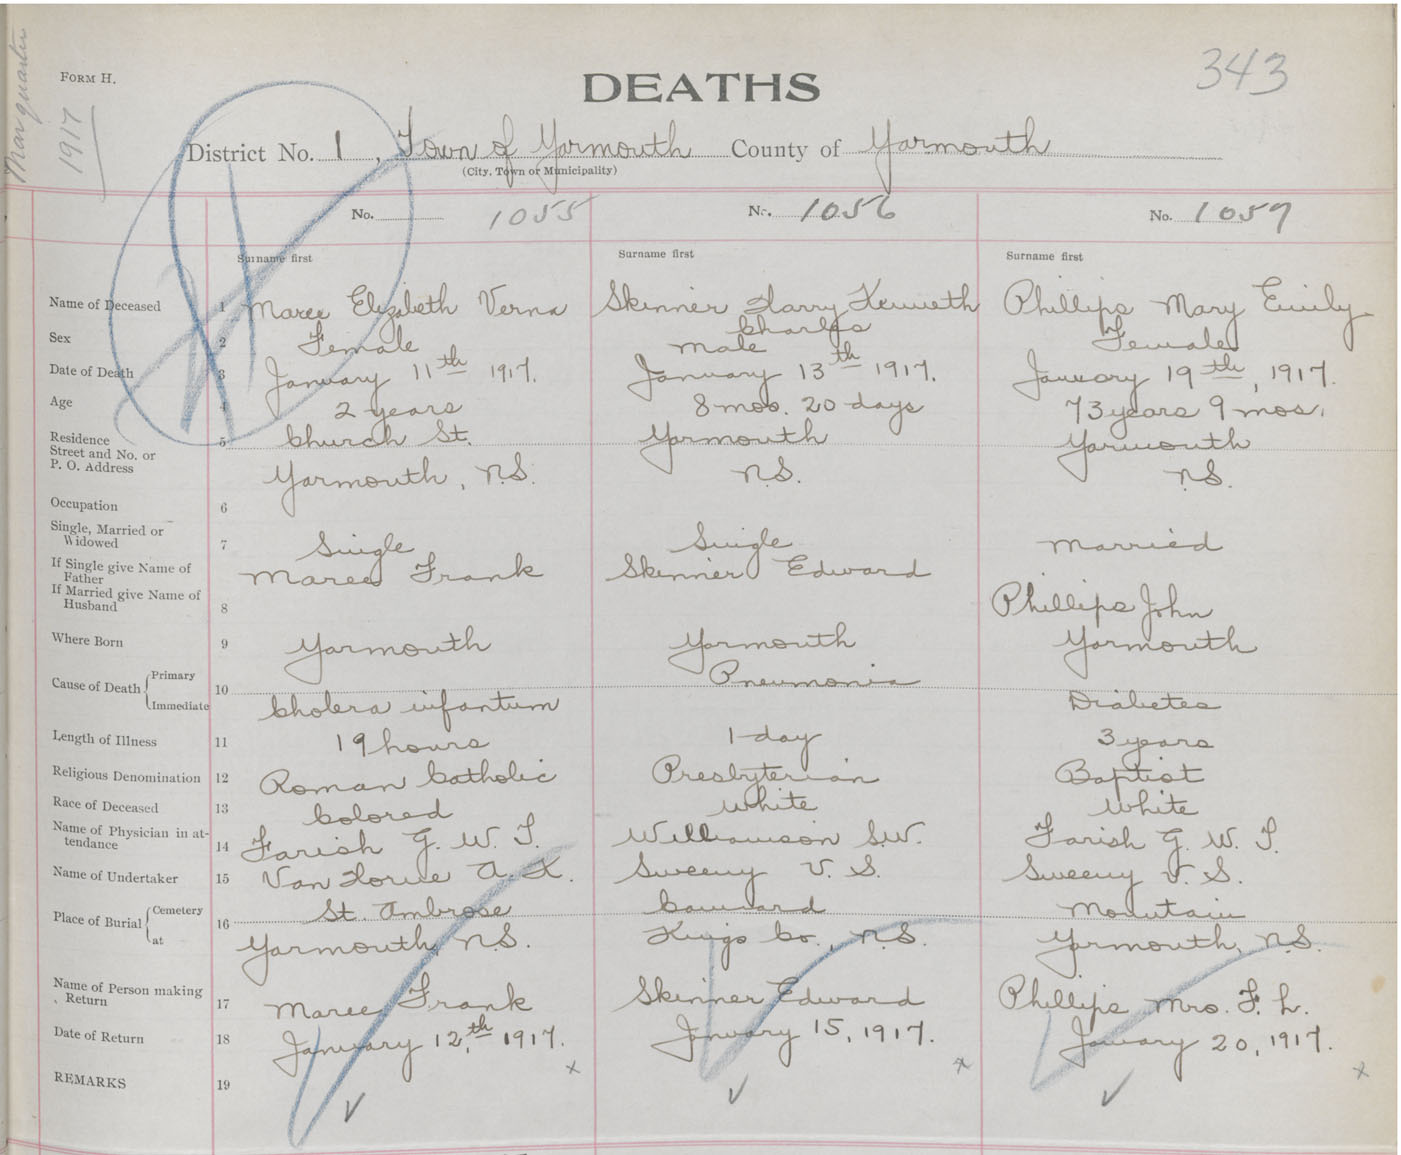 Mar quarter
1917
FORM H.
DEATHS
343
District No. 1, Town of Yarmouth County of Yarmouth
(City, Town or Municipality)
No. 1055 No. 1056 No. 1057
Surname first Surname first Surname first
Name of Deceased 1 Maree Elizabeth Verna Skinner Harry Kenneth Charles Phillips Mary Emily
Sex 2 Female male Female
Date of Death 3 January 11th 1917. January 13th 1917. January 19th, 1917.
Age 4 2 years 8 mos. 20 days 73 years 9 mos.
Residence 5 Church St. Yarmouth Yarmouth
Street and No. or
P. O. Address Yarmouth, N.S. N.S. N.S.
Occupation 6
Single, Married or
Widowed 7 Single Single married
If Single give Name of
Father Maree Frank Skinner Edward
If Married give Name of
Husband 8 Phillips John
Where Born 9 Yarmouth Yarmouth Yarmouth
Cause of Death Primary 10 Pneumonia
Immediate Cholera infantum Diabetes
Length of Illness 11 19 hours 1 day 3 years
Religious Denomination 12 Roman Catholic Presbyterian Baptist
Race of Deceased 13 Colored White White
Name of Physician in at-
tendance 14 Farish G. W. T. Williamson S.W. Farish G. W. T.
Name of Undertaker 15 Van Horne A. K. Sweeny V. S. Sweeny V. S.
Place of Burial Cemetery 16 St. Ambrose Mountain
at Yarmouth, N.S. Kings Co., N.S. Yarmouth, N.S.
Name of Person making
Return 17 Maree Frank Skinner Edward Phillips Mrs. F. L.
Date of Return 18 January 12,th 1917. January 15, 1917. January 20, 1917.
x x x
REMARKS 19